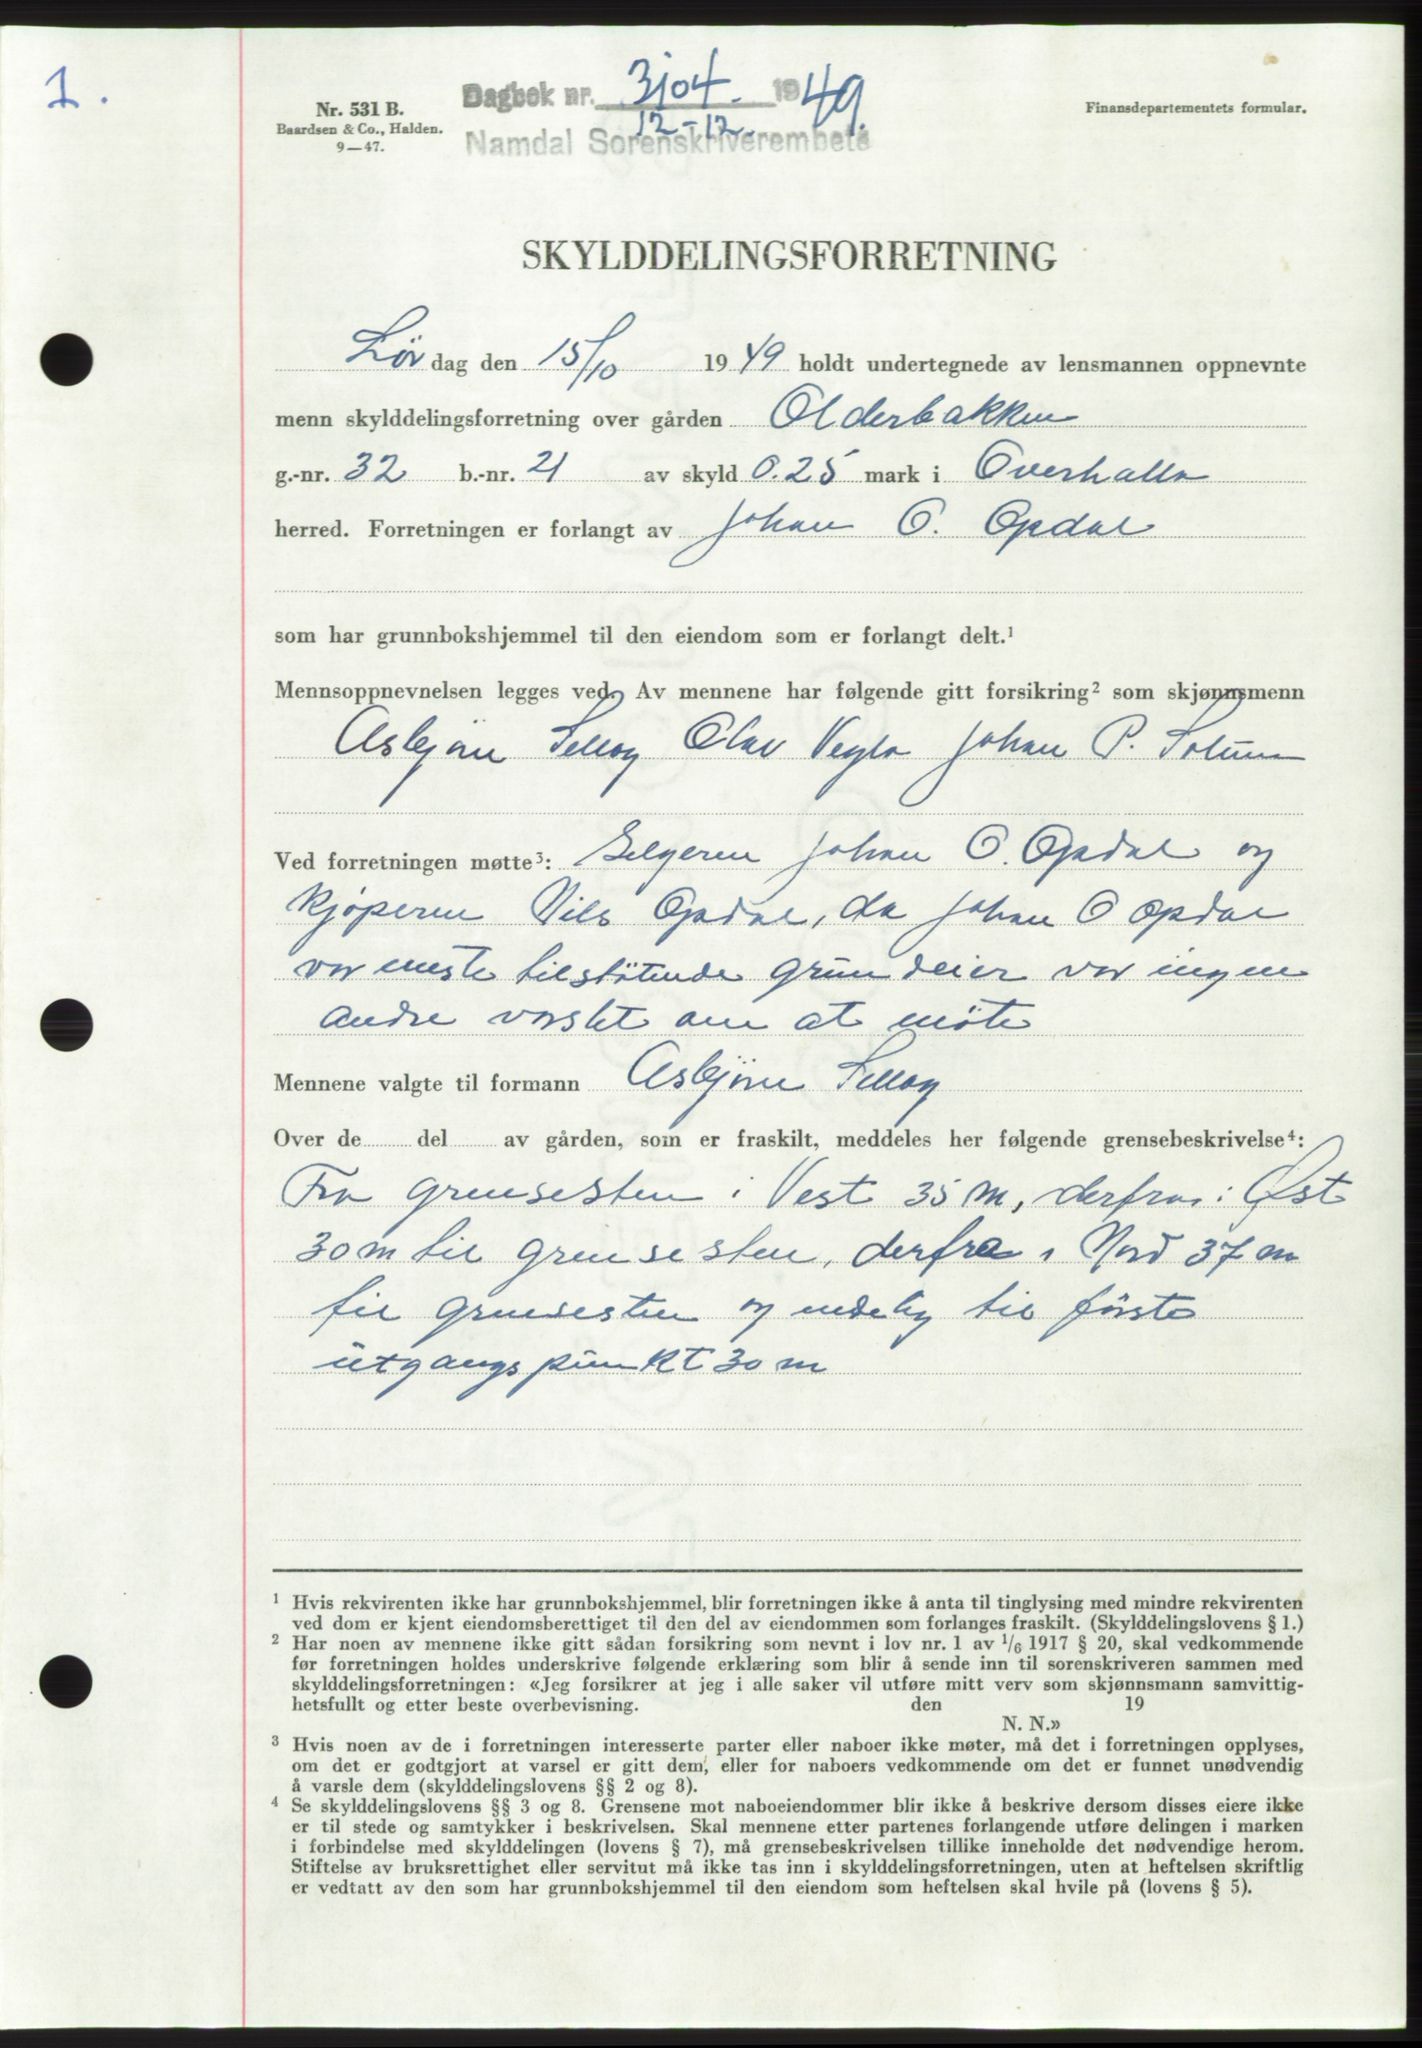 1.
Nr. 531 B.
Baardsen & Co., Halden.
9—47.
Dagbok nr. 3104. 1949.
12-12.
Namdal Sorenskriverembete
Finansdepartementets formular.
SKYLDDELINGSFORRETNING
Lør dag den 15/10 1949 holdt undertegnede av lensmannen oppnevnte
menn skylddelingsforretning over gården Olderbakken
g.-nr. 32 b.-nr. 21 av skyld 0.25 mark i Overhalla
herred. Forretningen er forlangt av Johan O. Opdal
som har grunnbokshjemmel til den eiendom som er forlangt delt.¹
Mennsoppnevnelsen legges ved. Av mennene har følgende gitt forsikring² som skjønnsmenn
Asbjørn Selleg Olav Veglo Johan P. Solum
Ved forretningen møtte³: Selgeren Johan O. Opdal og
kjøperen Nils Opdal, da Johan O Opdal
var eneste tilstøtende grunneier var ingen
andre varslet om at møte
Mennene valgte til formann Asbjørn Selleg
Over de del av gården, som er fraskilt, meddeles her følgende grensebeskrivelse⁴:
Fra grensesten i Vest 35 m, derfra i Øst
30 m til grensesten, derfra i Nord 37 m
til grensesten og endelig til første
utgangspunkt 30 m
¹ Hvis rekvirenten ikke har grunnbokshjemmel, blir forretningen ikke å anta til tinglysing med mindre rekvirenten
ved dom er kjent eiendomsberettiget til den del av eiendommen som forlanges fraskilt. (Skylddelingslovens § 1.)
² Har noen av mennene ikke gitt sådan forsikring som nevnt i lov nr. 1 av 1/6 1917 § 20, skal vedkommende
før forretningen holdes underskrive følgende erklæring som blir å sende inn til sorenskriveren sammen med
skylddelingsforretningen: «Jeg forsikrer at jeg i alle saker vil utføre mitt verv som skjønnsmann samvittig-
hetsfullt og etter beste overbevisning. den 19
N. N.»
³ Hvis noen av de i forretningen interesserte parter eller naboer ikke møter, må det i forretningen opplyses,
om det er godtgjort at varsel er gitt dem, eller for naboers vedkommende om det er funnet unødvendig
å varsle dem (skylddelingslovens §§ 2 og 8).
⁴ Se skylddelingslovens §§ 3 og 8. Grensene mot naboeiendommer blir ikke å beskrive dersom disses eiere ikke
er til stede og samtykker i beskrivelsen. Skal mennene etter partenes forlangende utføre delingen i marken
i forbindelse med skylddelingen (lovens § 7), må grensebeskrivelsen tillike inneholde det nødvendige herom.
Stiftelse av bruksrettighet eller servitut må ikke tas inn i skylddelingsforretningen, uten at heftelsen skriftlig
er vedtatt av den som har grunnbokshjemmel til den eiendom som heftelsen skal hvile på (lovens § 5).